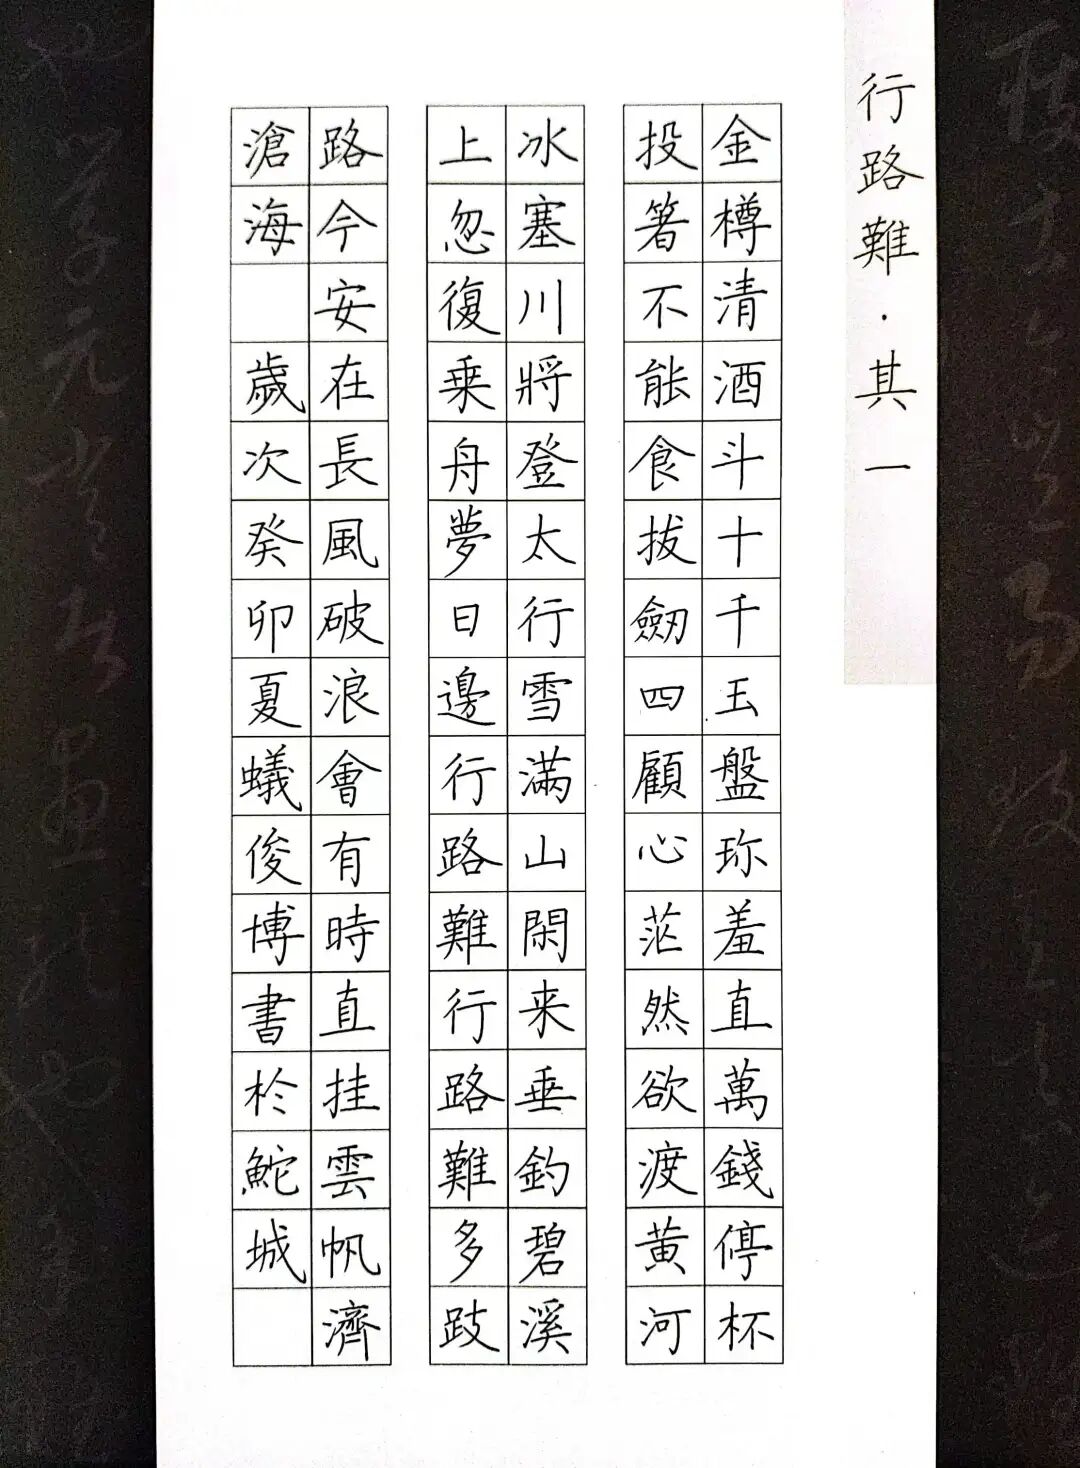 行路難·其一
金樽清酒斗十千玉盤珎羞直萬錢停杯
投箸不能食拔劒四顧心茫然欲渡黄河
冰塞川將登太行雪滿山閑来垂釣碧溪
上忽復乗舟夢日邊行路難行路難多歧
路今安在長風破浪會有時直挂雲帆濟
滄海 歲次癸卯夏蟻俊博書於鮀城